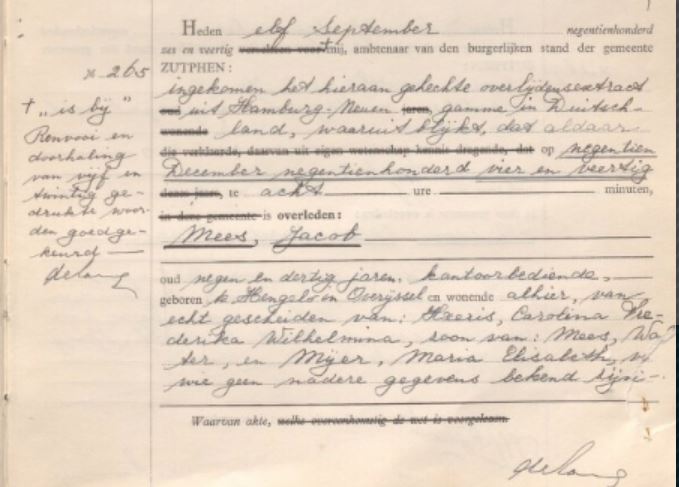 Heden elf September negentienhonderd
zes en veertig verscheen voor mij, ambtenaar van den burgerlijken stand der gemeente
ZUTPHEN:
ingekomen het hieraan gehechte overlijdensextract
oud uit Hamburg-Neuen jaren, gamme in Duitsch-
wonende land, waaruit blijkt, dat aldaar
die verklaarde, daarvan uit eigen wetenschap kennis dragende, dat op negentien
December negentienhonderd vier en veertig
dezes jaars, te acht ure minuten,
in deze gemeente is overleden:
Mees, Jacob
oud negen en dertig jaren, kantoorbediende,
geboren te Hengelo in Overijssel en wonende alhier, van
echt gescheiden van: Haeris, Carolina Fre-
derika Wilhelmina, zoon van: Mees, Wa
ter, en Mijer, Maria Elisabeth, v
wie geen nadere gegevens bekend zijn.
Waarvan akte, welke overeenkomstig de wet is voorgelezen.
de Lang
No 265
† „is bij"
Renvooi en
doorhaling
van vijf en
twintig ge-
drukte woor-
den goedge-
keurd
de Lang